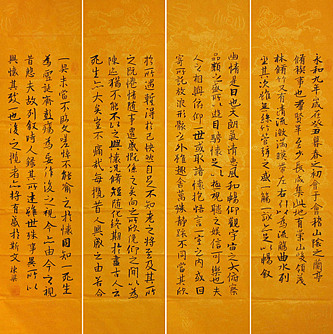 永和九年歲在癸丑暮春之初會于會稽山陰之蘭亭
脩禊事也群賢畢至少長咸集此地有崇山峻領茂
林脩竹又有清流激湍暎帶左右引以為流觴曲水列
坐其次雖無絲竹管弦之盛一觴一詠亦足以暢叙
幽情是日也天朗氣清惠風和暢仰觀宇宙之大俯察
品類之盛所以遊目騁懷足以極視聽之娛信可樂也夫
人之相與俯仰一世或取諸懷抱悟言一室之內或因
寄所託放浪形骸之外雖趣舍萬殊靜躁不同當其欣
於所遇蹔得於己快然自足不知老之將至及其所
之既惓情隨事遷感慨係之矣向之所欣俛仰之間以為
陳迹猶不能不以之興懷況脩短隨化終期於盡古人云
死生亦大矣豈不痛哉每攬昔人興感之由若合
一契未嘗不臨文嗟悼不能喻之於懷固知一死生
為虛誕齊彭殤為妄作後之視今亦由今之視
昔悲夫故列叙時人錄其所述雖世殊事異所以
興懷其致一也後之攬者亦將有感於斯文